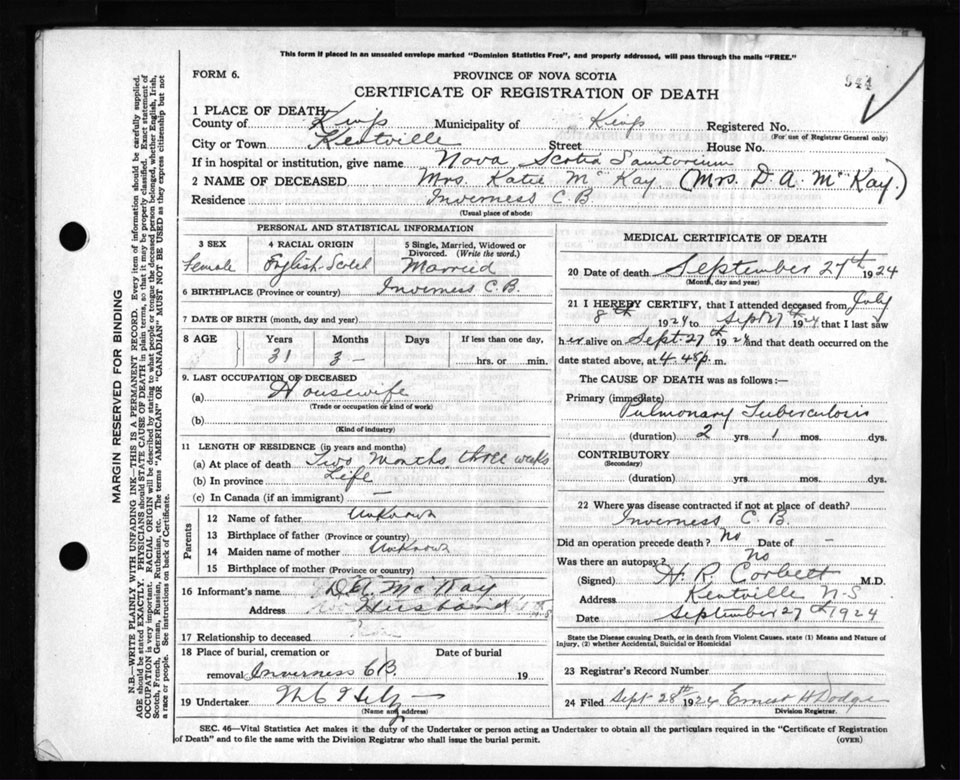 This form if placed in an unsealed envelope marked "Dominion Statistics Free", and properly addressed, will pass through the mails "FREE."
FORM 6.
PROVINCE OF NOVA SCOTIA
944
CERTIFICATE OF REGISTRATION OF DEATH
1 PLACE OF DEATH
County of Kings Municipality of Kings Registered No.
(For use of Registrar General only)
City or Town Kentville Street House No.
If in hospital or institution, give name Nova Scotia Sanitorium
2 NAME OF DECEASED Mrs. Katie McKay (Mrs. D. A. McKay.)
Residence Inverness C.B.
(Usual place of abode)
PERSONAL AND STATISTICAL INFORMATION
3 SEX 4 RACIAL ORIGIN 5 Single, Married, Widowed or Divorced. (Write the word.)
Female English-Scotch Married
6 BIRTHPLACE (Province or country) Inverness C.B.
7 DATE OF BIRTH (month, day and year)
8 AGE Years Months Days If less than one day,
31 3 - hrs. or min.
9. LAST OCCUPATION OF DECEASED
(a) Housewife
(Trade or occupation or kind of work)
(b)
(Kind of industry)
11 LENGTH OF RESIDENCE (in years and months)
(a) At place of death Two months three weeks
(b) In province Life
(c) In Canada (if an immigrant) —
Parents
12 Name of father Unknown
13 Birthplace of father (Province or country)
14 Maiden name of mother Unknown
15 Birthplace of mother (Province or country)
16 Informant's name D.A. McKay
Address Husband
17 Relationship to deceased
18 Place of burial, cremation or removal Inverness C.B. Date of burial 19
19 Undertaker
(Name and address)
MEDICAL CERTIFICATE OF DEATH
20 Date of death September 27th 1924
(Month, day and year)
21 I HEREBY CERTIFY, that I attended deceased from July
8th 1924 to Sept 27th 1924 that I last saw
her alive on Sept. 27th 1924 and that death occurred on the
date stated above, at 4.48 p. m.
The CAUSE OF DEATH was as follows:—
Primary (immediate)
Pulmonary Tuberculosis
(duration) 2 yrs 1 mos. dys.
CONTRIBUTORY
(Secondary)
(duration) yrs. mos. dys.
22 Where was disease contracted if not at place of death?
Inverness C.B.
Did an operation precede death? No Date of -
Was there an autopsy? No
(Signed) H. R. Corbett M.D.
Address Kentville N-S
Date September 27th 1924
State the Disease causing Death, or in death from Violent Causes, state (1) Means and Nature of
Injury, (2) whether Accidental, Suicidal or Homicidal
23 Registrar's Record Number
24 Filed Sept 28th 1924 Ernest H Dodge
Division Registrar.
SEC. 46—Vital Statistics Act makes it the duty of the Undertaker or person acting as Undertaker to obtain all the particulars required in the "Certificate of Registration
of Death" and to file the same with the Division Registrar who shall issue the burial permit.
(OVER)
MARGIN RESERVED FOR BINDING
N.B.—WRITE PLAINLY WITH UNFADING INK—THIS IS A PERMANENT RECORD. Every item of information should be carefully supplied.
AGE should be stated EXACTLY. PHYSICIANS should STATE CAUSE OF DEATH in plain terms, so that it may be properly classified. Exact statement of
OCCUPATION is very important. RACIAL ORIGIN will be described by stating to what people or tongue the deceased person belonged, whether English, Irish,
Scotch, French, German, Russian, Ruthenian, etc. The terms "AMERICAN" OR "CANADIAN" MUST NOT BE USED as they express citizenship but not
a race or people. See instructions on back of Certificate.